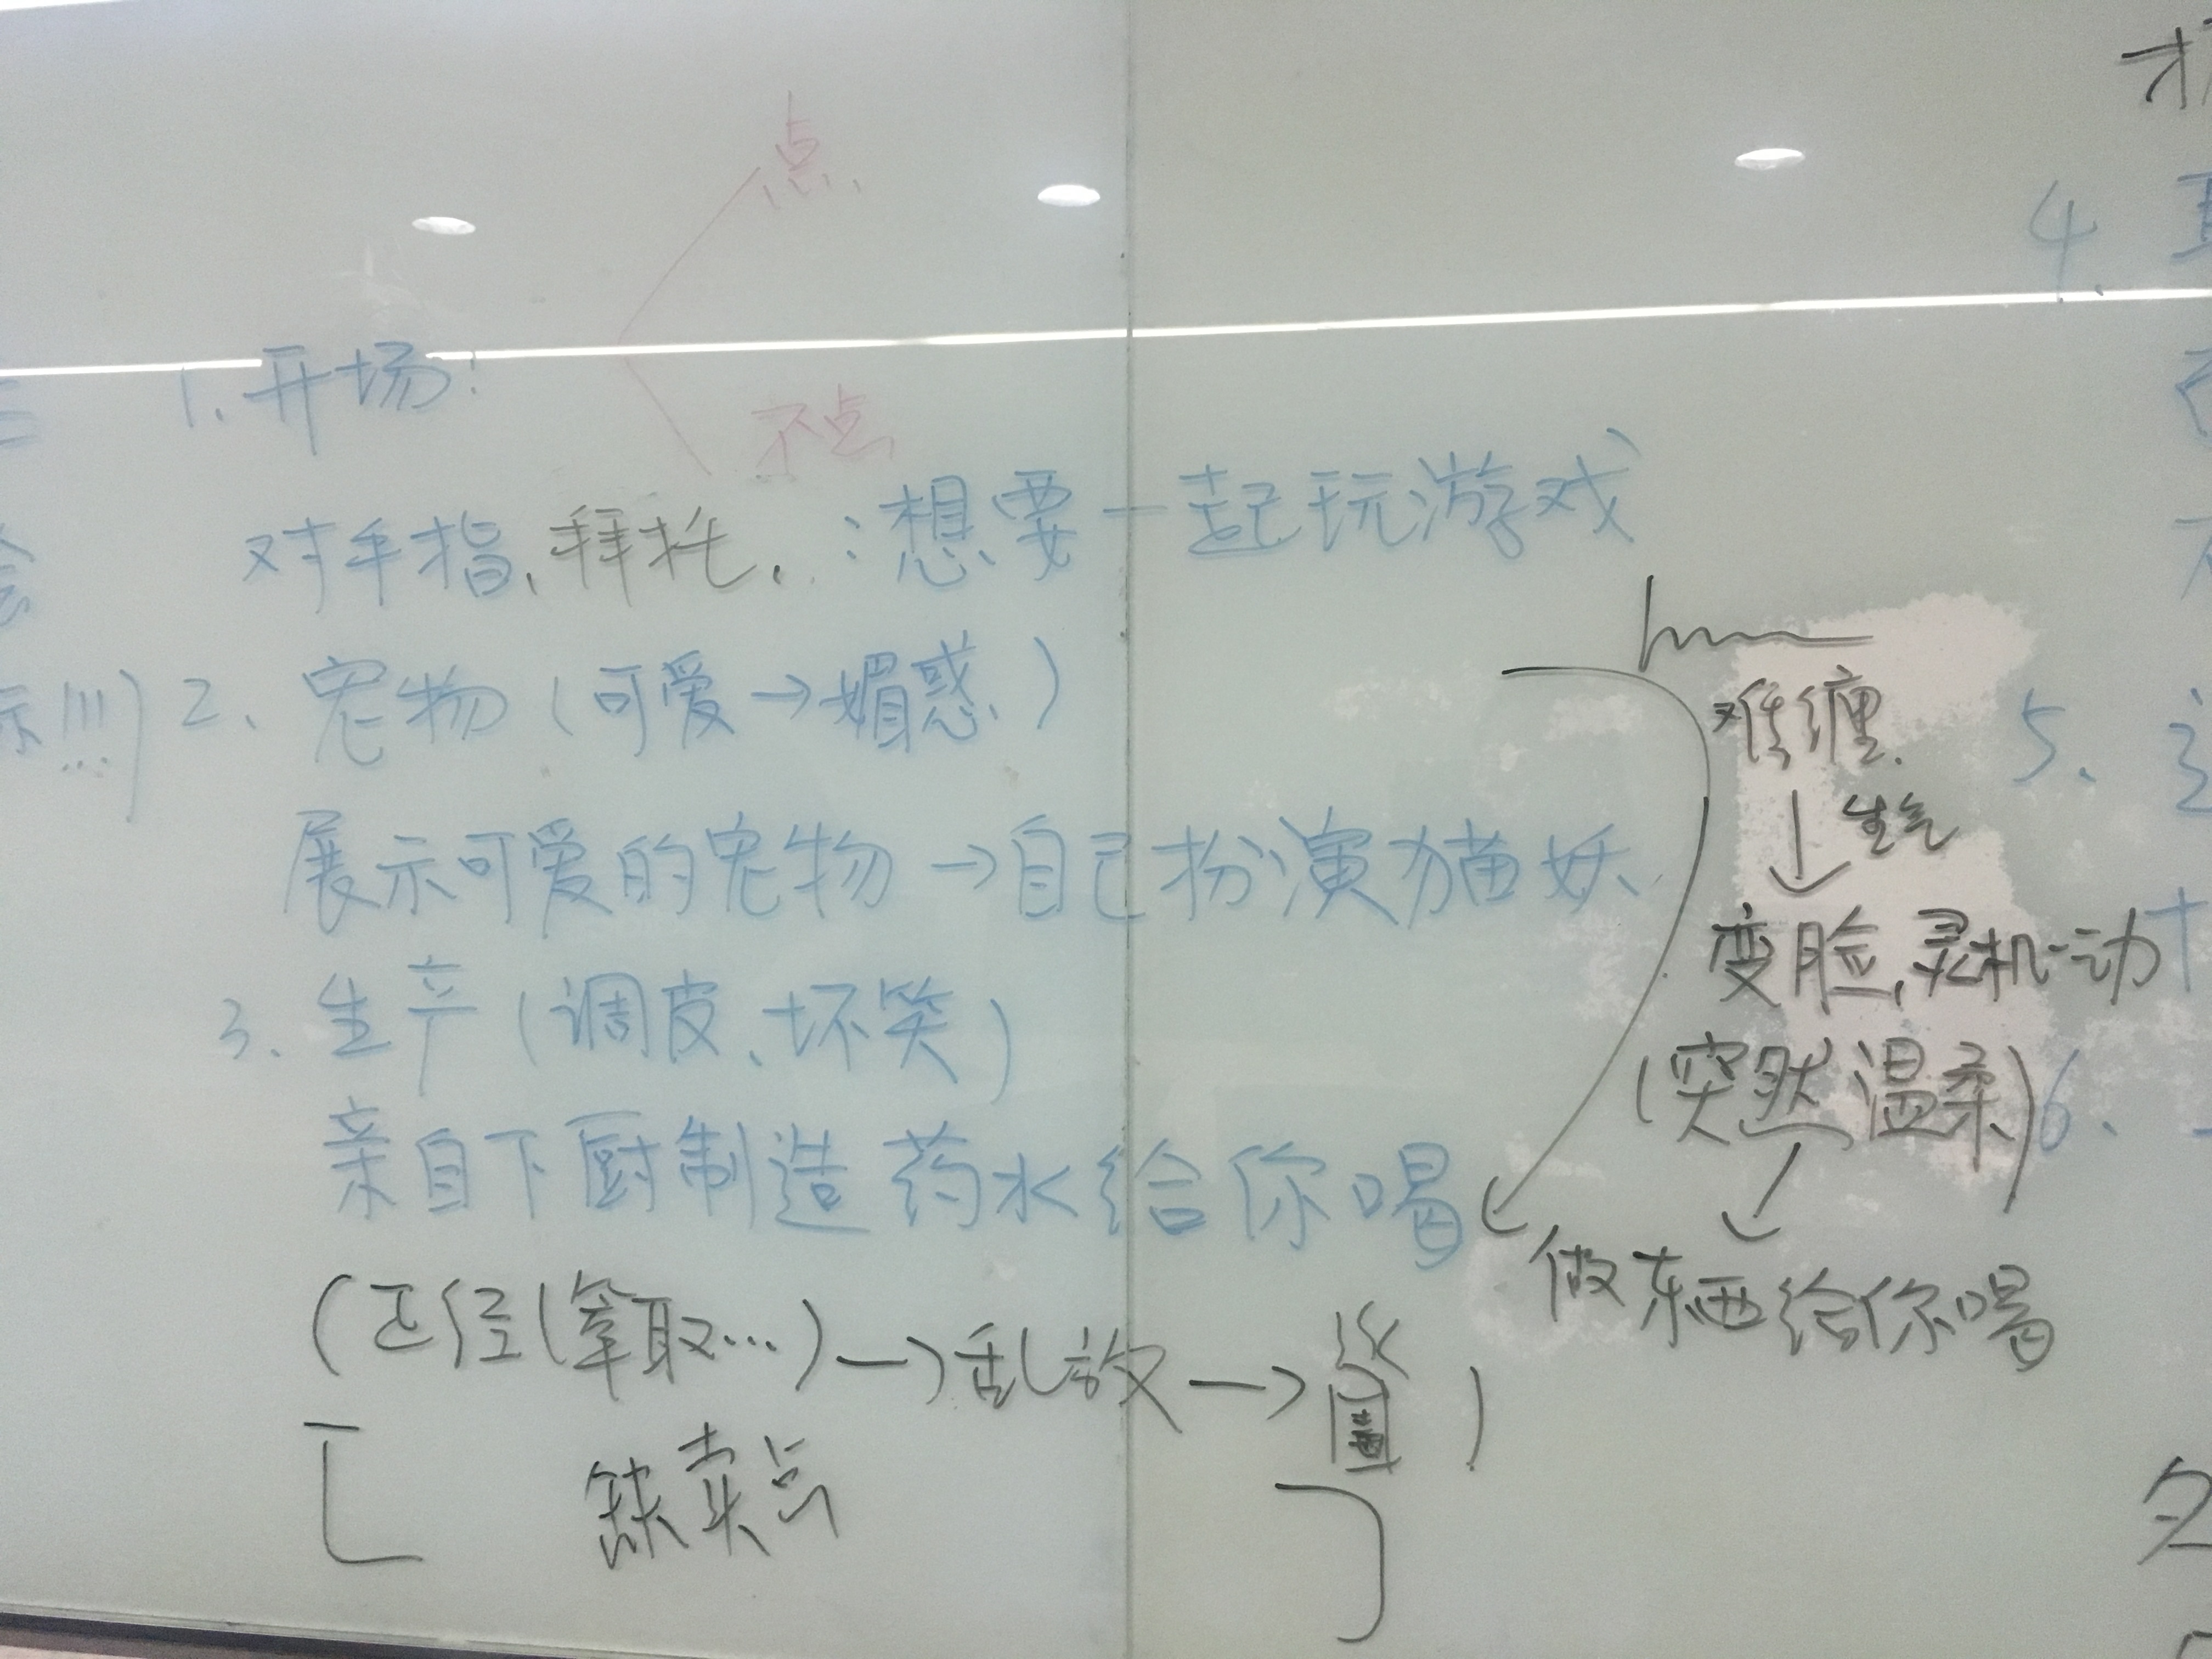 点
1. 开场:
不点
对手指、拜托. :想要一起玩游戏
2、宠物(可爱→媚惑、)
展示可爱的宠物→自己扮演猫妖
3、生产(调皮、坏笑)
亲自下厨制造药水给你喝
(正经(拿取…)→乱放→
缺卖点
难缠.
↓生气
变脸,灵机一动
(突然温柔)
做东西给你喝
4.
5、
6、
示!!!)